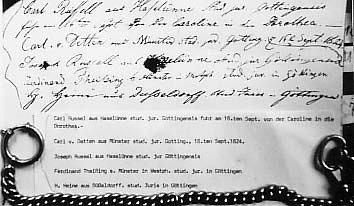 Carl Russel aus Haselünne stud. jur. Göttingensis
Caroline in die Dorothea.
Carl v. Detten aus Münster stud. jur. Götting. 18t Sept. 1824
Joseph Russell aus Haselünne stud jur Göttingensis
Ferdinand Theißing a. Münster Westph stud. jur. in Göttingen
H. Heine aus Düsseldorff. stud Juris Göttingen
Carl Russel aus Haselünne stud. jur. Göttingensis fuhr am 18.ten Sept. von der Caroline in die
Dorothea.-
Carl v. Detten aus Münster stud. jur. Gotting., 18.ten Sept.1824.
Joseph Russell aus Haselünne stud jur Göttingensis
Ferdinand Theißing a. Münster in Westph. stud. jur. in Göttingen
H. Heine aus Düßeldorff. stud. Juris in Göttingen